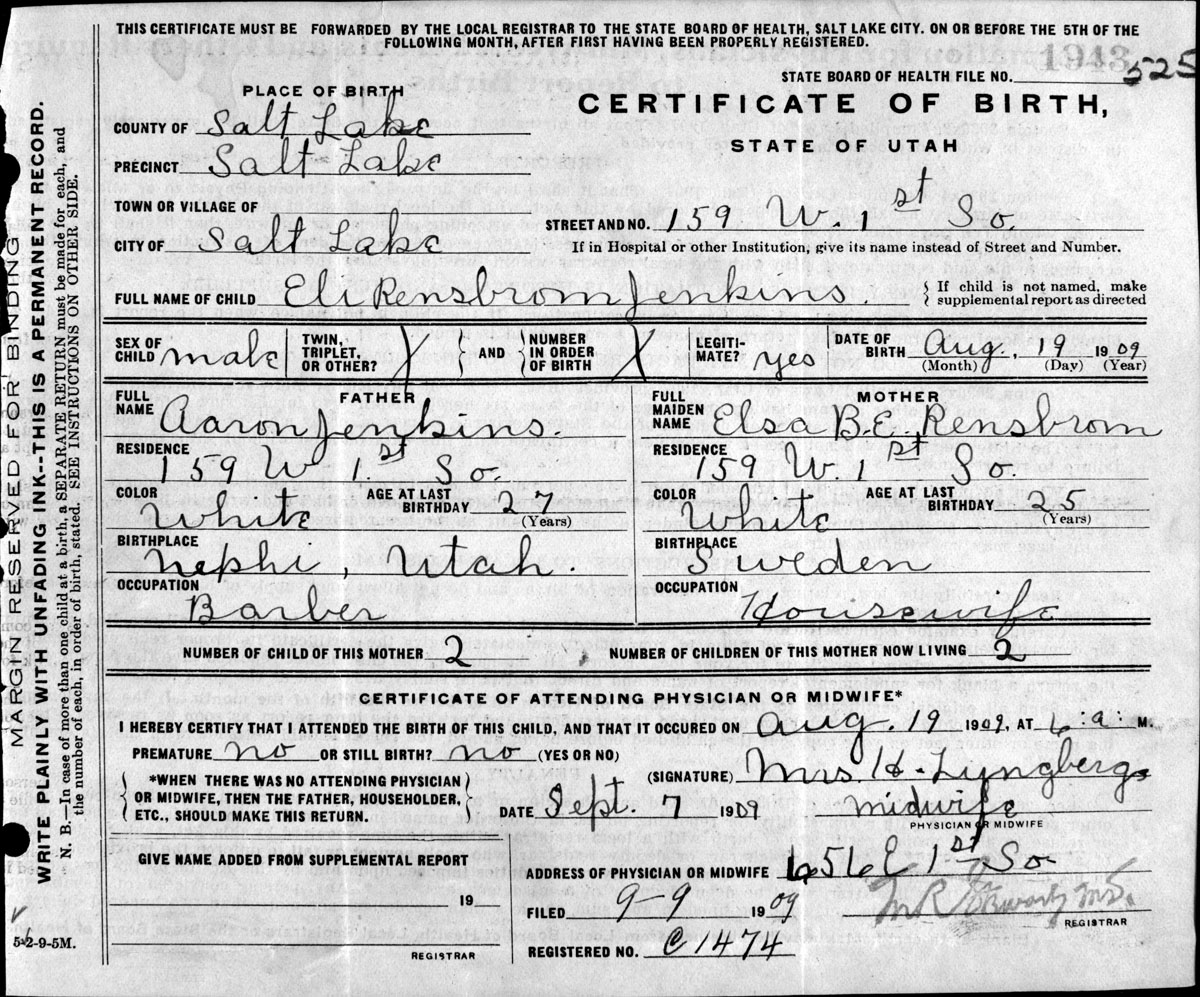 THIS CERTIFICATE MUST BE FORWARDED BY THE LOCAL REGISTRAR TO THE STATE BOARD OF HEALTH, SALT LAKE CITY. ON OR BEFORE THE 5TH OF THE
FOLLOWING MONTH, AFTER FIRST HAVING BEEN PROPERLY REGISTERED.
1943
STATE BOARD OF HEALTH FILE NO. 525
PLACE OF BIRTH
CERTIFICATE OF BIRTH,
STATE OF UTAH
COUNTY OF Salt Lake
PRECINCT Salt Lake
TOWN OR VILLAGE OF
STREET AND NO. 159 W. 1st So.
CITY OF Salt Lake
If in Hospital or other Institution, give its name instead of Street and Number.
FULL NAME OF CHILD Eli Rensbrom Jenkins.
{ If child is not named, make
supplemental report as directed
SEX OF CHILD male
TWIN, TRIPLET, OR OTHER? } AND { NUMBER IN ORDER OF BIRTH
LEGITIMATE? yes
DATE OF BIRTH Aug. 19 1909
(Month) (Day) (Year)
FATHER
FULL NAME Aaron Jenkins.
RESIDENCE 159 W. 1st So.
COLOR White
AGE AT LAST BIRTHDAY 27
(Years)
BIRTHPLACE Nephi, Utah
OCCUPATION Barber
MOTHER
FULL MAIDEN NAME Elsa B.E. Rensbrom
RESIDENCE 159 W. 1st So.
COLOR White
AGE AT LAST BIRTHDAY 25
(Years)
BIRTHPLACE Sweden
OCCUPATION Housewife
NUMBER OF CHILD OF THIS MOTHER 2
NUMBER OF CHILDREN OF THIS MOTHER NOW LIVING 2
CERTIFICATE OF ATTENDING PHYSICIAN OR MIDWIFE*
I HEREBY CERTIFY THAT I ATTENDED THE BIRTH OF THIS CHILD, AND THAT IT OCCURED ON Aug. 19 1909, AT 6 a M.
PREMATURE no OR STILL BIRTH? no (YES OR NO)
{ *WHEN THERE WAS NO ATTENDING PHYSICIAN
OR MIDWIFE, THEN THE FATHER, HOUSEHOLDER,
ETC., SHOULD MAKE THIS RETURN. }
(SIGNATURE) Mrs. H. Lyngberg
DATE Sept. 7 1909
midwife
PHYSICIAN OR MIDWIFE
GIVE NAME ADDED FROM SUPPLEMENTAL REPORT
19
REGISTRAR
ADDRESS OF PHYSICIAN OR MIDWIFE 656 E 1st So
FILED 9-9 1909
REGISTRAR
REGISTERED NO. C 1474
MARGIN RESERVED FOR BINDING
WRITE PLAINLY WITH UNFADING INK--THIS IS A PERMANENT RECORD.
N. B.—In case of more than one child at a birth, a SEPARATE RETURN must be made for each, and
the number of each, in order of birth, stated. SEE INSTRUCTIONS ON OTHER SIDE.
5-2-9-5M.